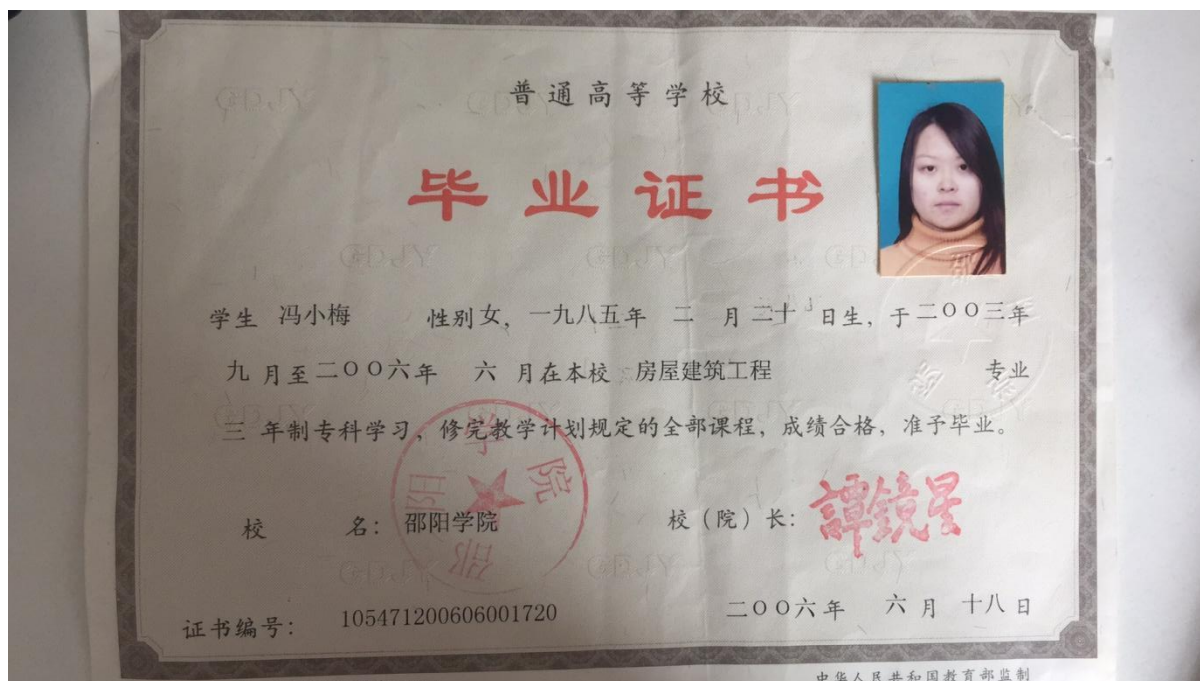 普通高等学校
毕业证书
学生 冯小梅 性别 女，一九八五年 二 月 二十 日生，于二〇〇三年
九 月至二〇〇六年 六 月在本校 房屋建筑工程 专业
三 年制专科学习，修完教学计划规定的全部课程，成绩合格，准予毕业。
校 名：邵阳学院 校（院）长：譚鏡星
邵阳学院
证书编号：105471200606001720 二〇〇六年 六 月 十八 日
中华人民共和国教育部监制